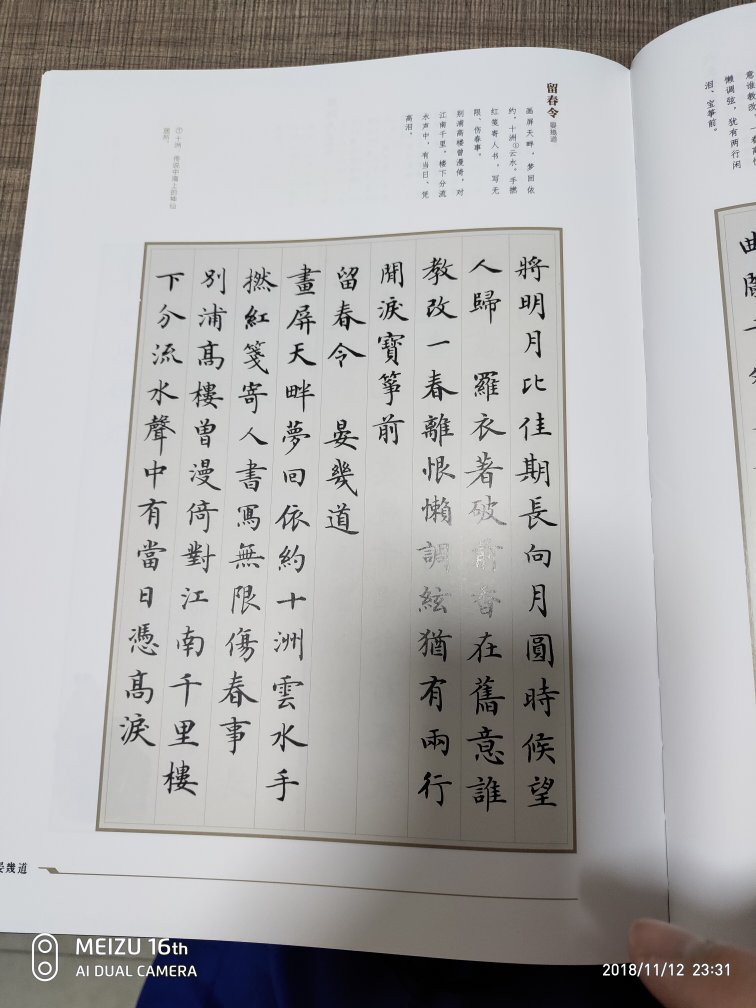 懒调弦，犹有两行闲
泪、宝筝前。
留春令 晏幾道
画屏天畔，梦回依
约，十洲①云水。手撚
红笺寄人书，写无
限、伤春事。
别浦高楼曾漫倚，对
江南千里，楼下分流
水声中，有当日、凭
高泪。
① 十洲：传说中海上的神仙
居所。
將明月比佳期長向月圓時候望
人歸 羅衣著破前香在舊意誰
教改一春離恨懶調絃猶有兩行
閒淚寶箏前
留春令 晏幾道
畫屏天畔夢回依約十洲雲水手
撚紅箋寄人書寫無限傷春事
別浦高樓曾漫倚對江南千里樓
下分流水聲中有當日憑高淚
晏幾道
MEIZU 16th
AI DUAL CAMERA
2018/11/12 23:31